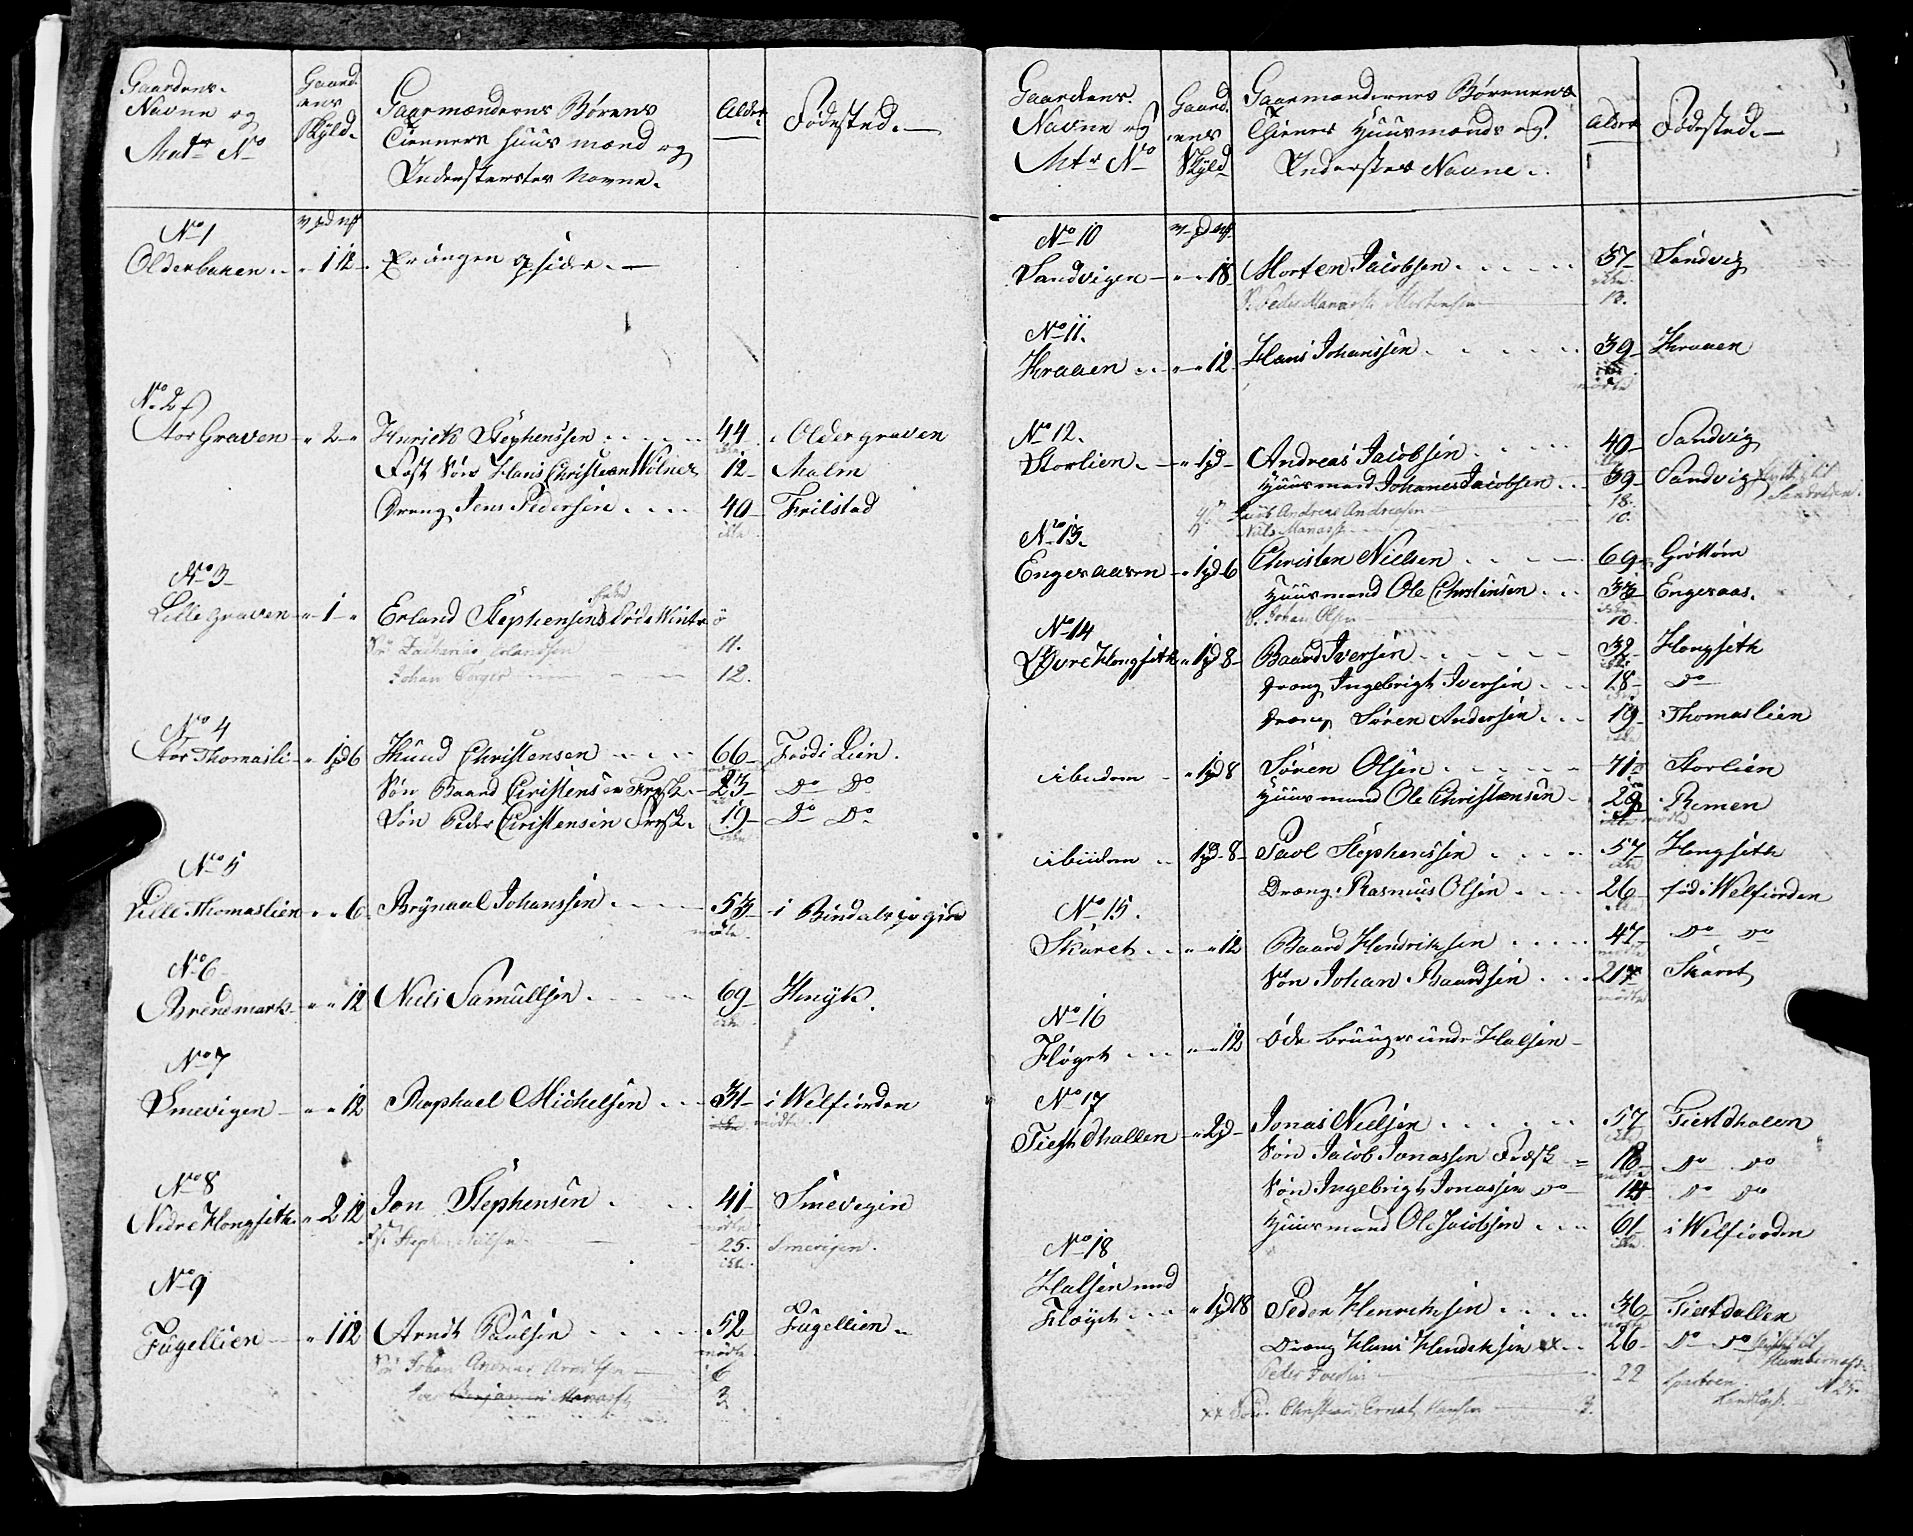 Gaardens
Navne og
Matr No
Gaard
ens
Skyld
Gaarmænderns Børens
Tienners Huus mænd og
Indersterstes Navne.
Alder
Fødested.
No 1
Olderbaken 1 12 Er ingen
No 2
Stor Graven 2 Hinrick Stephenssen 44 Oldergraven
Fost Søn Hans Christian Wolner 12 Malm
Dreng Jens Pedersen 40 Feilstad
ikke
No 3
Lille Graven 1 Erland Stephensen
Søn Zacharias Erlandsen 11.
Johan 12.
No 4
Stor Thomasli 1 pd 6 Knud Christensen 66 Fødi Lien.
Søn Baard Christensen Frisk 23 Do Do
Søn Peder Christensen Frisk 19 Do Do
ikke
No 5
Lille Thomaslien 6 Brynaal Johanssen 53 i Bindals
mødte
No 6
Brendemark 12 Niels Samullsen 69
ikke
No 7
Smevigen 12 Raphael Michelsen 31 i Welfiorden
ikke mødte.
No 8
Nedre Hongseth 2 12 Jon Stephensen 41 Smevigen
mødte
25. Smevigen.
ikke
No 9
Fugellien 1 12 Arndt Paulsen 52 Fugellien
mødte
Søn Johan Andreas Arndtsen 6
Benjamin 3
Gaardens
Navne og
Mtr No
Gaard
ens
Skyld
Gaarmændernes Børenens
Tienes Huusmænds og
Indersters Navne.
Alder
Fødested.
No 10
Sandvigen 18 Morten Jacobsen 37 Sandvig
ikke
S. Peder Mortensen 13.
No 11.
Kraaen 12 Hans Johanssen 39 Kraaen
mødte
No 12.
Storlien 1 pd Andreas Jacobsen 40 Sandvig
Huusmand Johanes Jacobsen 39 Sandvig
Andreas Andreasen 18.
Nils 10.
No 13.
Engesaasen 1 pd 6 Christen Nielsen 69
Huusmand Ole Christensen 33 Engesaas.
ikke
S. Johan Olsen 10.
No 14
Øvre Hongseth 1 pd 8 Baard Iversen 32 Hongseth
Dreng Ingebrigt Iversen 18 Do
Dreng Søren Andersen 19 Thomaslien
ikke
ibidem 1 pd 8 Søren Olsen 41 Storlien
Huusmand Ole Christensen Remen
mødte
ibidem 1 pd 8 Paul Stephenssen 57 Hongseth
Dreng Rasmus Olsen 26 født i Welfiorden
No 15.
Skaret 12 Baard Hendriksen 47 Do Do
mødte
Søn Johan Baardsen 21 Skaret
mødte
No 16
Fløget 12 Øde bruuges under Halsen
No 17
Tiestdhallen 2 pd Jonas Nielsen 57 Tiestdhalen
Søn Jacob Jonassen Frisk 18 Do Do
Søn Ingebrigt Jonassen Do 14 Do Do
Huusmand Ole Jacobsen 61 i Welfiorden
ikke
No 18
Halsen med
Fløget 1 pd 18 Peder Henriksen 36 Tiestdallen
mødte
Dreng Hans Hendriksen xx 26 Do Do
Peder 22
xx Søn Christian Ernst Hansen